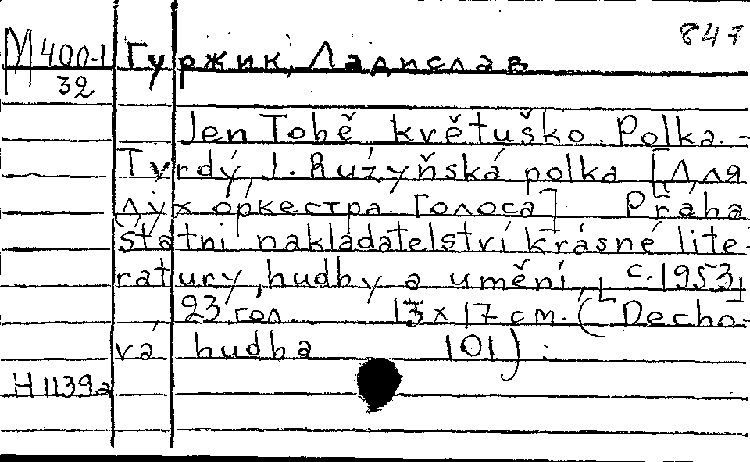 847
М 400-1 Гуржик, Ладислав
32
Jen Tobě květuško. Polka. -
Tvrdý, J. Ružyňská polka [Для
дух оркестра голоса] Praha
státní nakladatelství krásné lite-
ratury, hudby a umění, [c. 1953]
23 гол 13 x 17 cm. (Decho-
vá hudba 101) .
Н 1139а